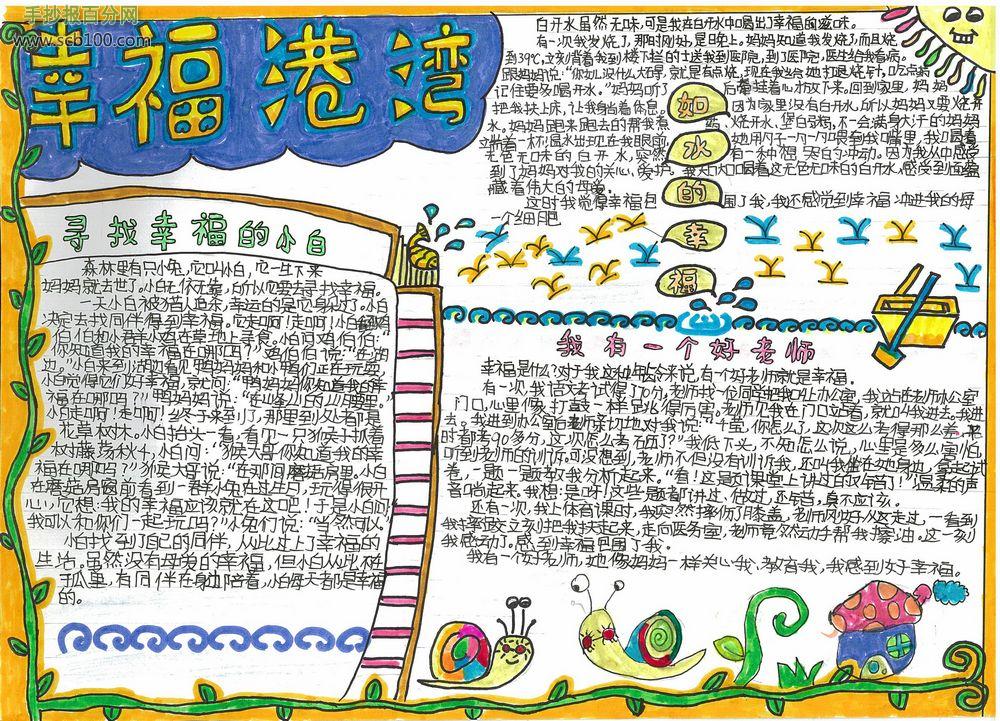 手抄报百分网
www.scb100.com
幸福港湾
白开水虽然无味,可是我在白开水中喝出了幸福的滋味。
有一次我发烧了,那时刚好是晚上。妈妈知道我发烧了,而且烧
到39℃,立刻背着我到楼下拦的士送我到医院,到了医院,医生给我看病。
记住要多喝开水。"妈妈听了
后牵挂着心放下来。回到家里,妈妈
把我扶上床,让我躺着休息,
因为家里没有白开水,所以妈妈又要烧开
水。妈妈跑来跑去的帮我煮
无色无味的白开水,突然
到了妈妈对我的关心、爱护。
藏着伟大的母爱。
这时我觉得幸福包
围了我,我还感觉到幸福冲进我的每
一个细胞
如
水
的
幸
福
寻找幸福的小白
森林里有只小兔,它叫小白,它一生下来
妈妈就去世了。小白无依无靠,所以它要去寻找幸福。
一天小白被猎人追杀,幸运的是它躲过了。小白
决定去找同伴得到幸福。它走呵!走呵!小白
你知道我的幸福在哪吗?"鸡伯伯说:"在湖
边。"小白来到湖边看见鸭妈妈和小鸭们正在玩耍。
小白觉得它们好幸福,就问:"鸭妈妈你知道我的幸
福在哪吗?"鸭妈妈说:"在
小白走呵!走呵!终于来到了,那里到处都是
花草树木。小白抬头一看,看见一只猴子抓着
树藤荡秋千,小白问:"猴大哥你知道我的幸
福在哪吗?"猴大哥说:"在那间蘑菇房里。小白
在蘑菇房窗前看到一群小兔在过生日,玩得很开
心,它想:我的幸福应该就在这吧!于是小白问
我可以和你们一起玩吗?"小兔们说:"当然可以。
小白找到了自己的同伴,从此过上了幸福的
生活。虽然没有母爱的幸福,但小白从此在
于瓜里,有同伴在身边陪着,小白每天都是幸福
的。
我有一个好老师
幸福是什么?对于我这和年龄来说,有一个好老师就是幸福。
有一次,我语文考试得了70分,老师找一位同学把我叫上办公室,我站在老师办公室
门口,心里像打鼓一样跳得厉害。老师见我在门口站着,就叫我进去。我进
去。我进到办公室,老师亲切地对我说:"千莹,你怎么了,这次这么考得那么差,平
时都考90多分,这次怎么考不好了?"我低下头,不知怎么说,心里是多么害怕
听到老师的训斥,可没想到,老师不但没有训斥我,还叫我坐在她身边,拿起试
卷,一题一题教我分析起来。"看!这是如课堂上讲过的又错了!"温柔的声
音响起来。我想:是呀!这些是题都讲过、做过,还错,真不应该。
还有一次,我上体育课时,我突然摔伤了膝盖,老师刚好从这走过,一看到
我摔跤立刻把我扶起来,走向医务室,老师竟然动手帮我擦油。这一刻
我感动了。感到幸福把围了我。
我有一个好老师,她像妈妈一样关心我,教育我,我感到好幸福。